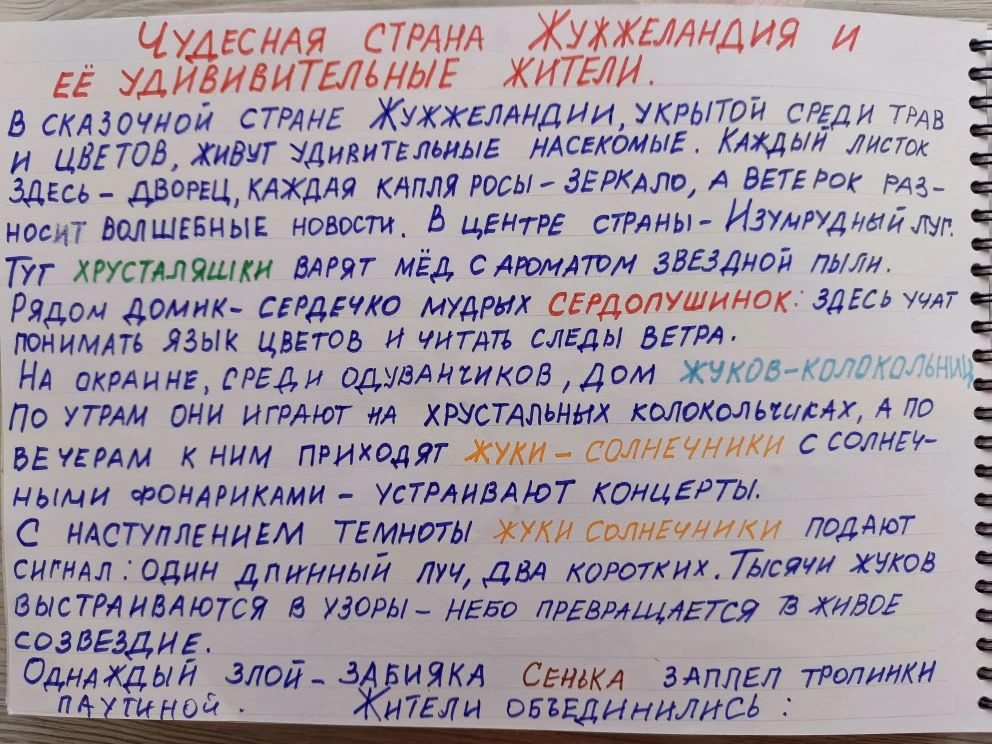 Чудесная страна Жужжеландия и
её удививительные жители.
В сказочной стране Жужжеландии, укрытой среди трав
и цветов, живут удивительные насекомые. Каждый листок
здесь – дворец, каждая капля росы – зеркало, а ветерок раз-
носит волшебные новости. В центре страны – Изумрудный луг.
Тут хрусталяшки варят мёд с ароматом звездной пыли.
Рядом домик – сердечко мудрых сердопушинок: здесь учат
понимать язык цветов и читать следы ветра.
На окраине, среди одуванчиков, дом жуков-колокольниц
По утрам они играют на хрустальных колокольчиках, а по
вечерам к ним приходят жуки – солнечники с солнеч-
ными фонариками – устраивают концерты.
С наступлением темноты жуки солнечники подают
сигнал: один длинный луч, два коротких. Тысячи жуков
выстраиваются в узоры – небо превращается в живое
созвездие.
Однаждый злой – забияка Сенька заплел тропинки
паутиной. Жители объединились: